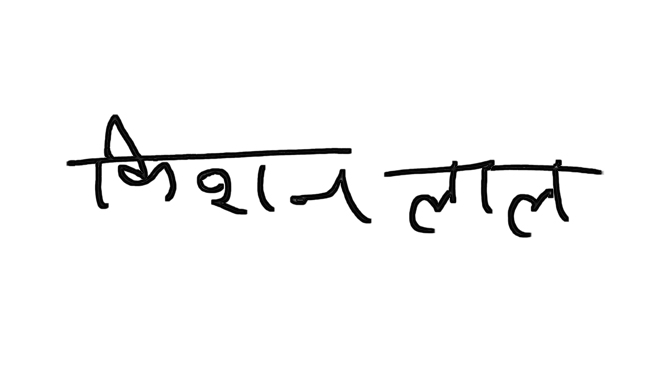 किशन लाल